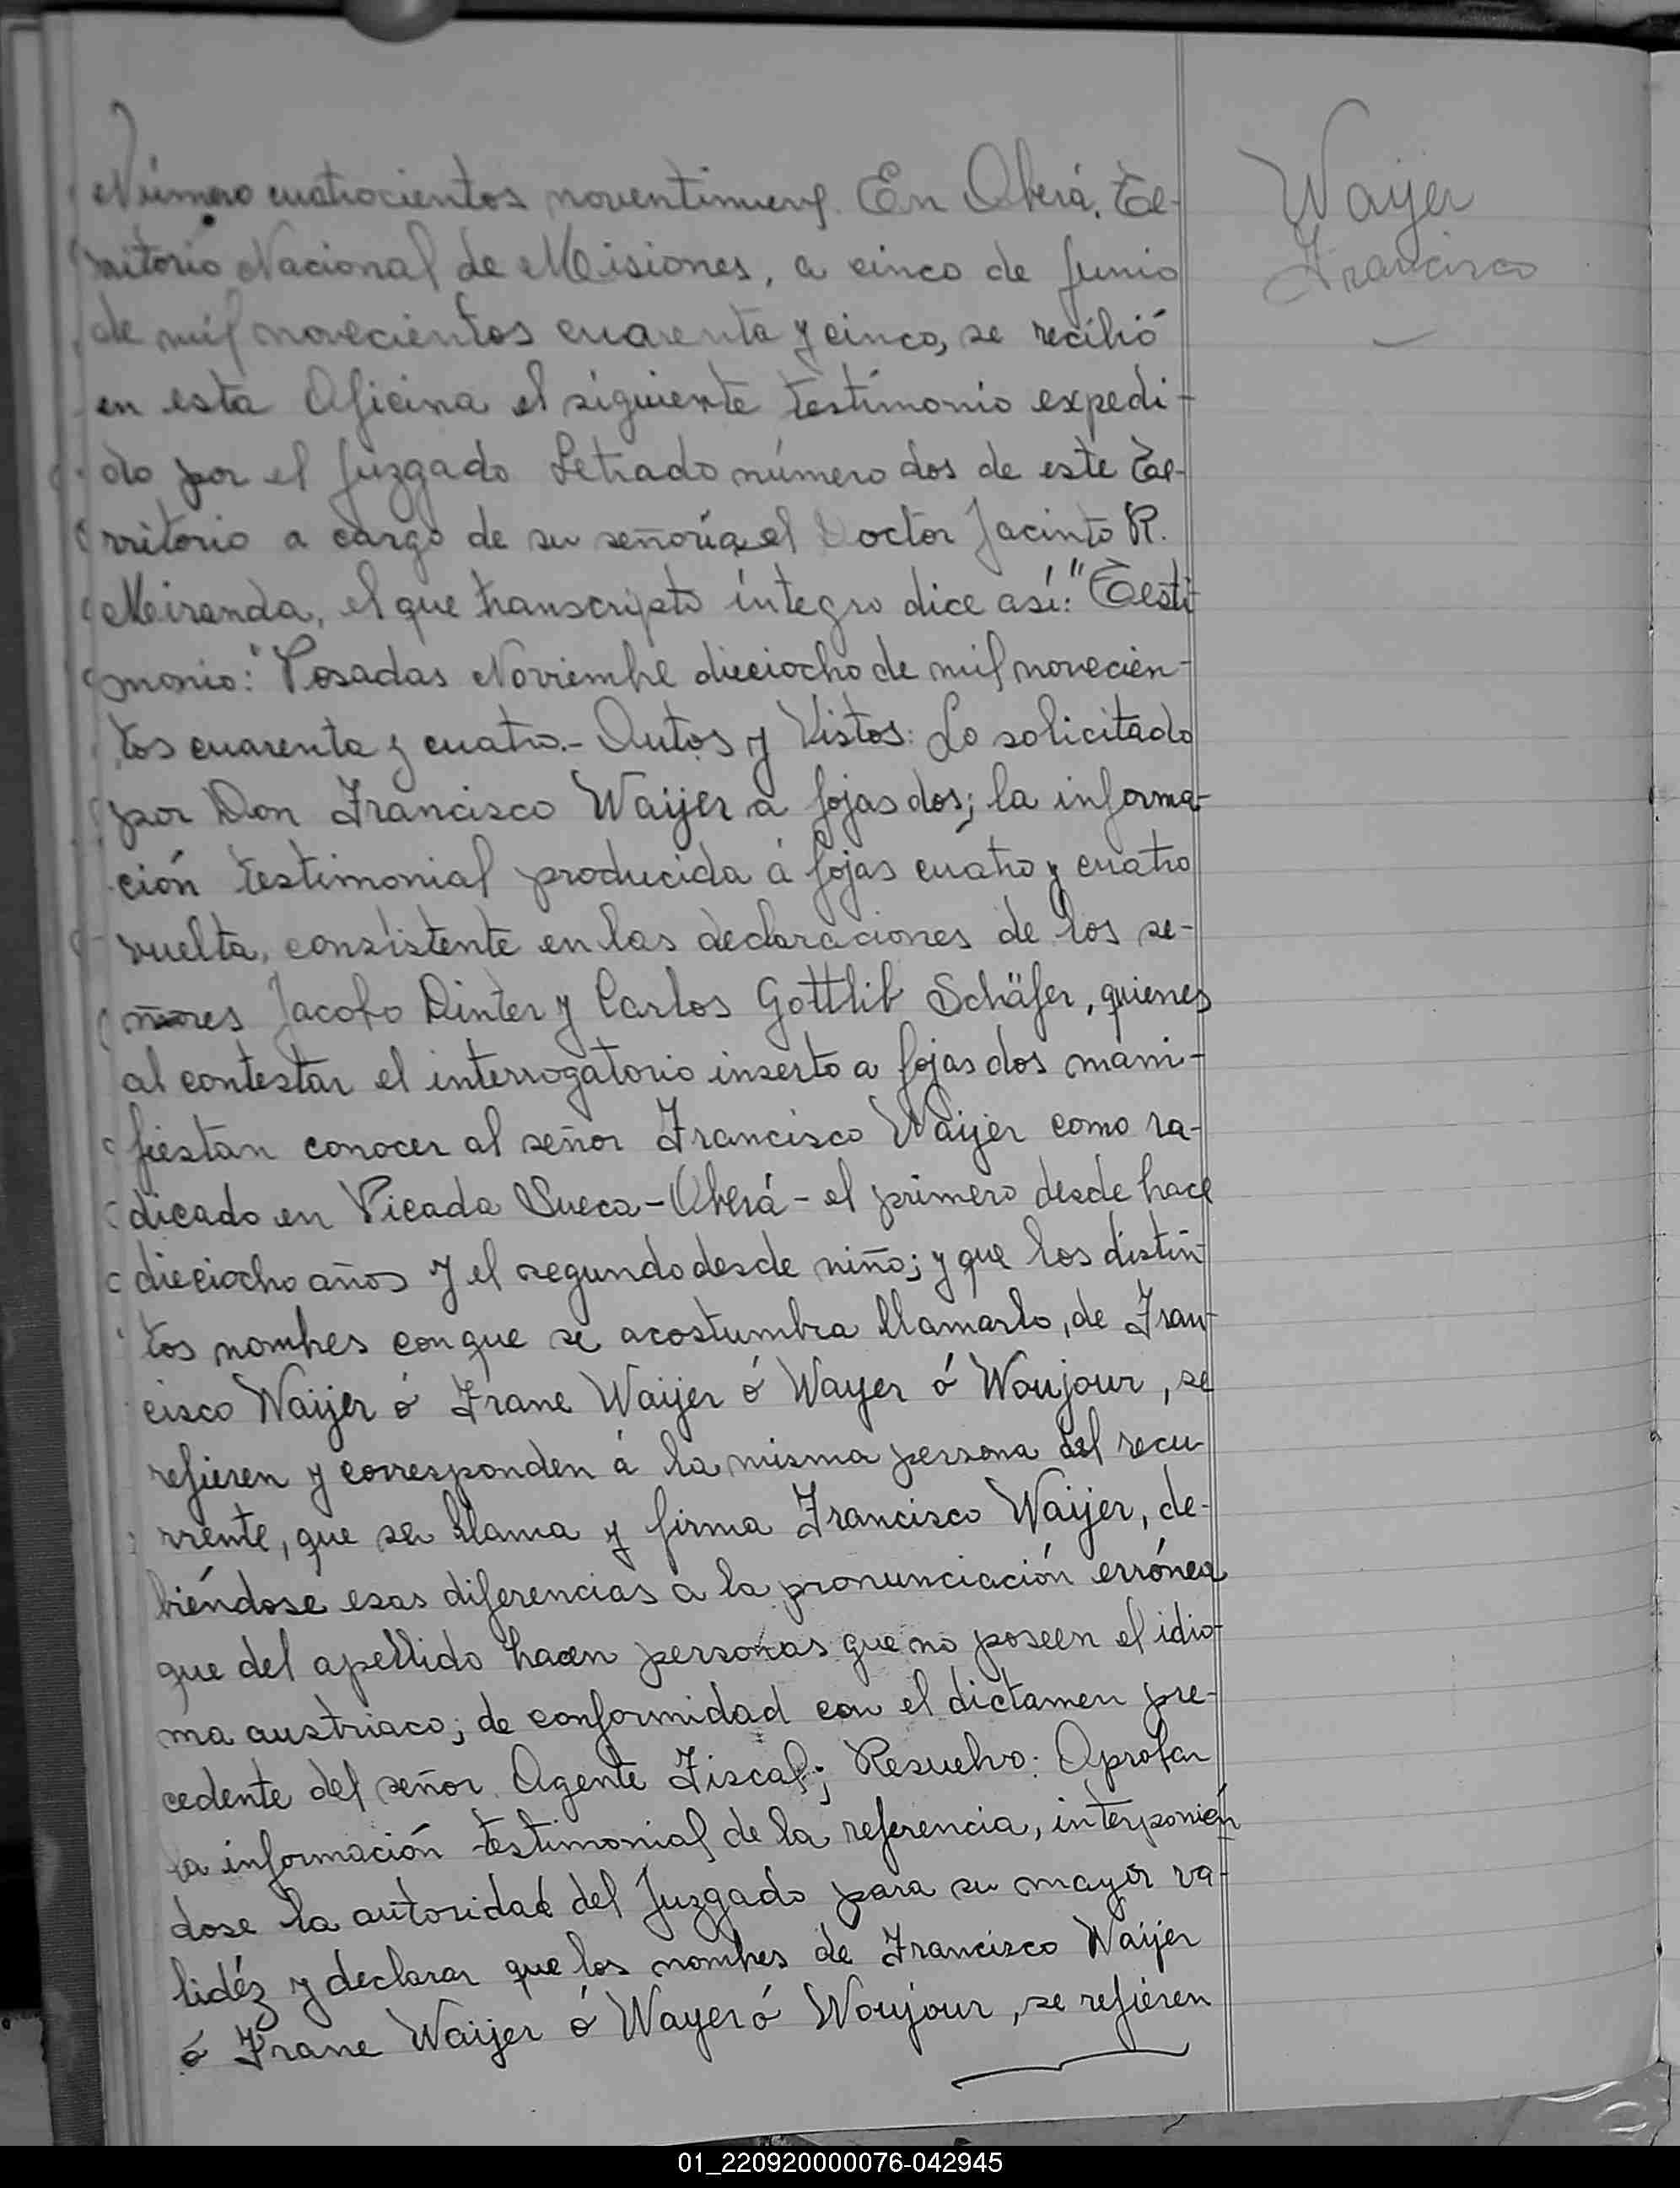 Número cuatrocientos noventinueve. En Oberá, Te-
rritorio Nacional de Misiones, a cinco de Junio
de mil novecientos cuarenta y cinco, se recibió
en esta Oficina el siguiente testimonio expedi-
do por el Juzgado Letrado número dos de este Te-
rritorio a cargo de su señoría el Doctor Jacinto R.
Miranda, el que transcripto íntegro dice así: "Testi
monio:" Posadas Noviembre dieciocho de mil novecien-
tos cuarenta y cuatro.- Autos y Vistos: Lo solicitado
por Don Francisco Waijer a fojas dos; la informa-
ción testimonial producida á fojas cuatro y cuatro
vuelta, consistente en las declaraciones de los se-
ñores Jacobo Dinter y Carlos Gottlib Schäfer, quienes
al contestar el interrogatorio inserto a fojas dos mani-
fiestan conocer al señor Francisco Waijer como ra-
dicado en Picada Sueca-Oberá- el primero desde hace
dieciocho años y el segundo desde niño; y que los distin
tos nombres con que se acostumbra llamarlo, de Fran-
cisco Waijer ó Frane Waijer ó Wayer ó Woujour, se
refieren y corresponden á la misma persona del recu-
rrente, que se llama y firma Francisco Waijer, de-
biéndose esas diferencias a la pronunciación errónea
que del apellido hacen personas que no poseen el idio-
ma austriaco; de conformidad con el dictamen pre-
cedente del señor Agente Fiscal; Resuelvo: Aprobar
la información testimonial de la referencia, interponién
dose la autoridad del Juzgado para su mayor va-
lidéz y declarar que los nombres de Francisco Waijer
ó Frane Waijer ó Wayer ó Woujour, se refieren
Waijer
Francisco
01_220920000076-042945